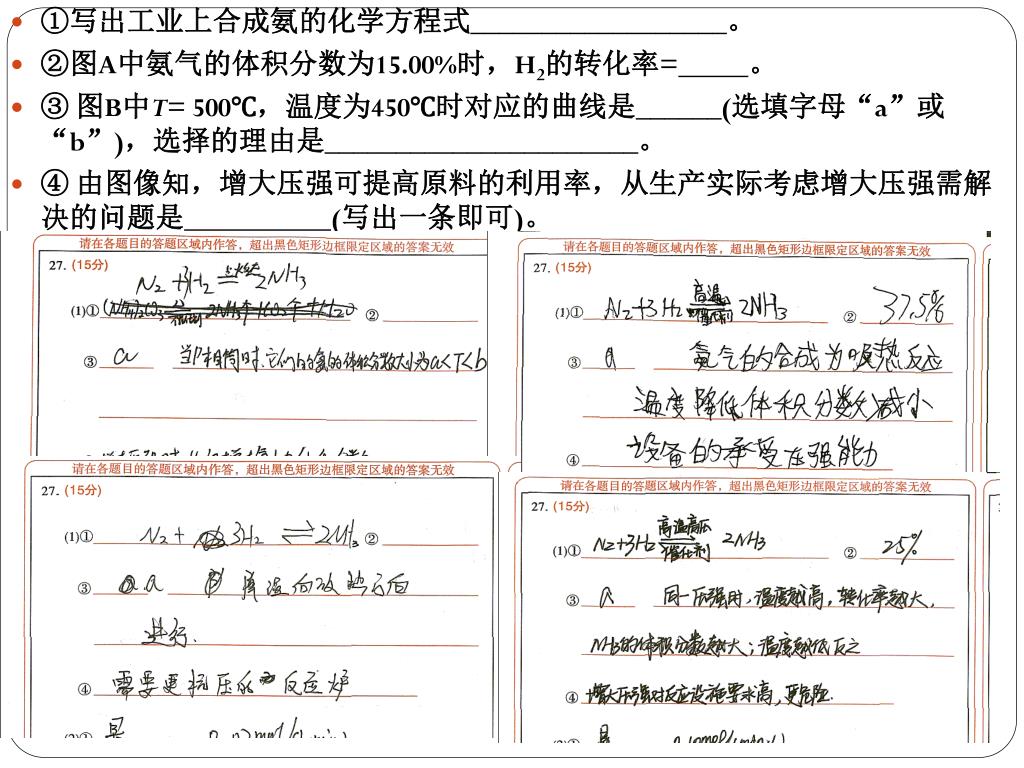 ①写出工业上合成氨的化学方程式____________________。
②图A中氨气的体积分数为15.00%时，H₂的转化率=_____。
③ 图B中T= 500℃，温度为450℃时对应的曲线是______(选填字母“a”或
“b”)，选择的理由是______________________。
④ 由图像知，增大压强可提高原料的利用率，从生产实际考虑增大压强需解
决的问题是__________(写出一条即可)。
请在各题目的答题区域内作答，超出黑色矩形边框限定区域的答案无效
27. (15分)
N₂ + 3H₂ ⇌ 2NH₃
(1)① ②
③ a 当P相同时，它们的氨的体积分数大小为a<T<b
请在各题目的答题区域内作答，超出黑色矩形边框限定区域的答案无效
27. (15分)
(1)① N₂+3H₂ 高温 催化剂 2NH₃ ② 37.5%
③ a 氨气的合成为吸热反应
温度降低体积分数减小
④ 设备的承受压强能力
请在各题目的答题区域内作答，超出黑色矩形边框限定区域的答案无效
27. (15分)
(1)① N₂+ 3H₂ ⇌ 2NH₃ ②
③ a 降温向放热方向
进行.
④ 需要更抗压的反应炉
请在各题目的答题区域内作答，超出黑色矩形边框限定区域的答案无效
27. (15分)
(1)① N₂+3H₂ 高温高压 催化剂 2NH₃ ② 25%
③ a 同一压强时，温度越高，转化率越大，
NH₃的体积分数越大；温度越低反之
④ 增大压强对反应设施要求高，更危险.